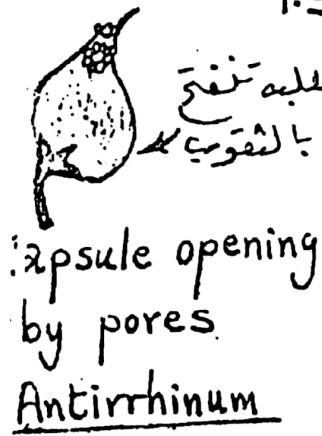 علبه تنفتح
بالثقوب
apsule opening
by pores
Antirrhinum